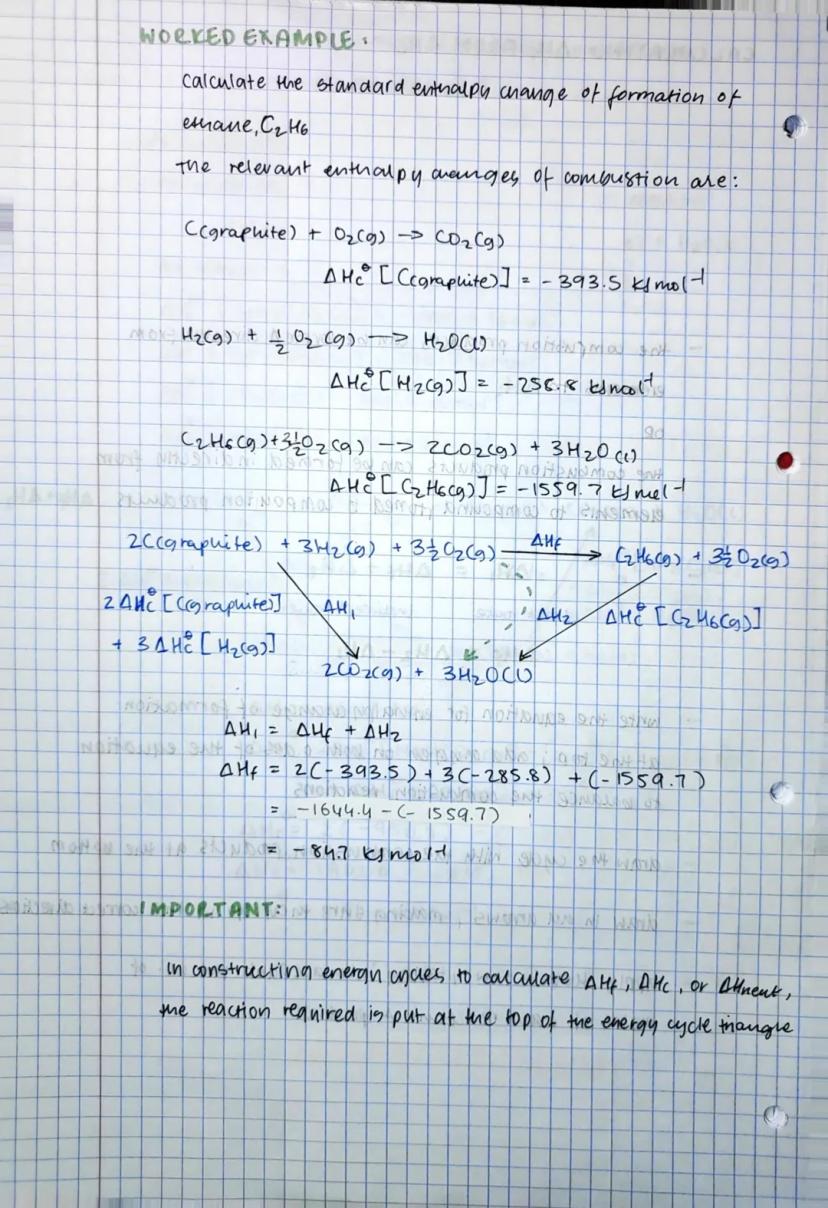 WORKED EXAMPLE:
calculate the standard enthalpy change of formation of
ethane, C2H6
the relevant enthalpy changes of combustion are:
C(graphite) + O2(g) → CO2(g)
ΔHc⦵ [C(graphite)] = -393.5 kJ mol⁻¹
H2(g) + ½ O2 (g) → H2O(l)
ΔHc⦵ [H2(g)] = -258.8 kJmol⁻¹
C2H6(g) + 3½O2(g) → 2CO2(g) + 3H2O (l)
ΔHc⦵ [C2H6(g)] = -1559.7 kJ mol⁻¹
2C(graphite) + 3H2(g) + 3½O2(g) ΔHf → C2H6(g) + 3½O2(g)
2ΔHc⦵ [C(graphite)] ΔH1 ΔH2 ΔHc⦵ [C2H6(g)]
+ 3ΔHc⦵ [H2(g)]
2CO2(g) + 3H2O(l)
ΔH1 = ΔHf + ΔH2
ΔHf = 2(-393.5) + 3(-285.8) + (-1559.7)
= -1644.4 - (- 1559.7)
= -84.7 kJ mol⁻¹
IMPORTANT:
in constructing energy cycles to calculate ΔHf, ΔHc, or ΔHneut,
the reaction required is put at the top of the energy cycle triangle